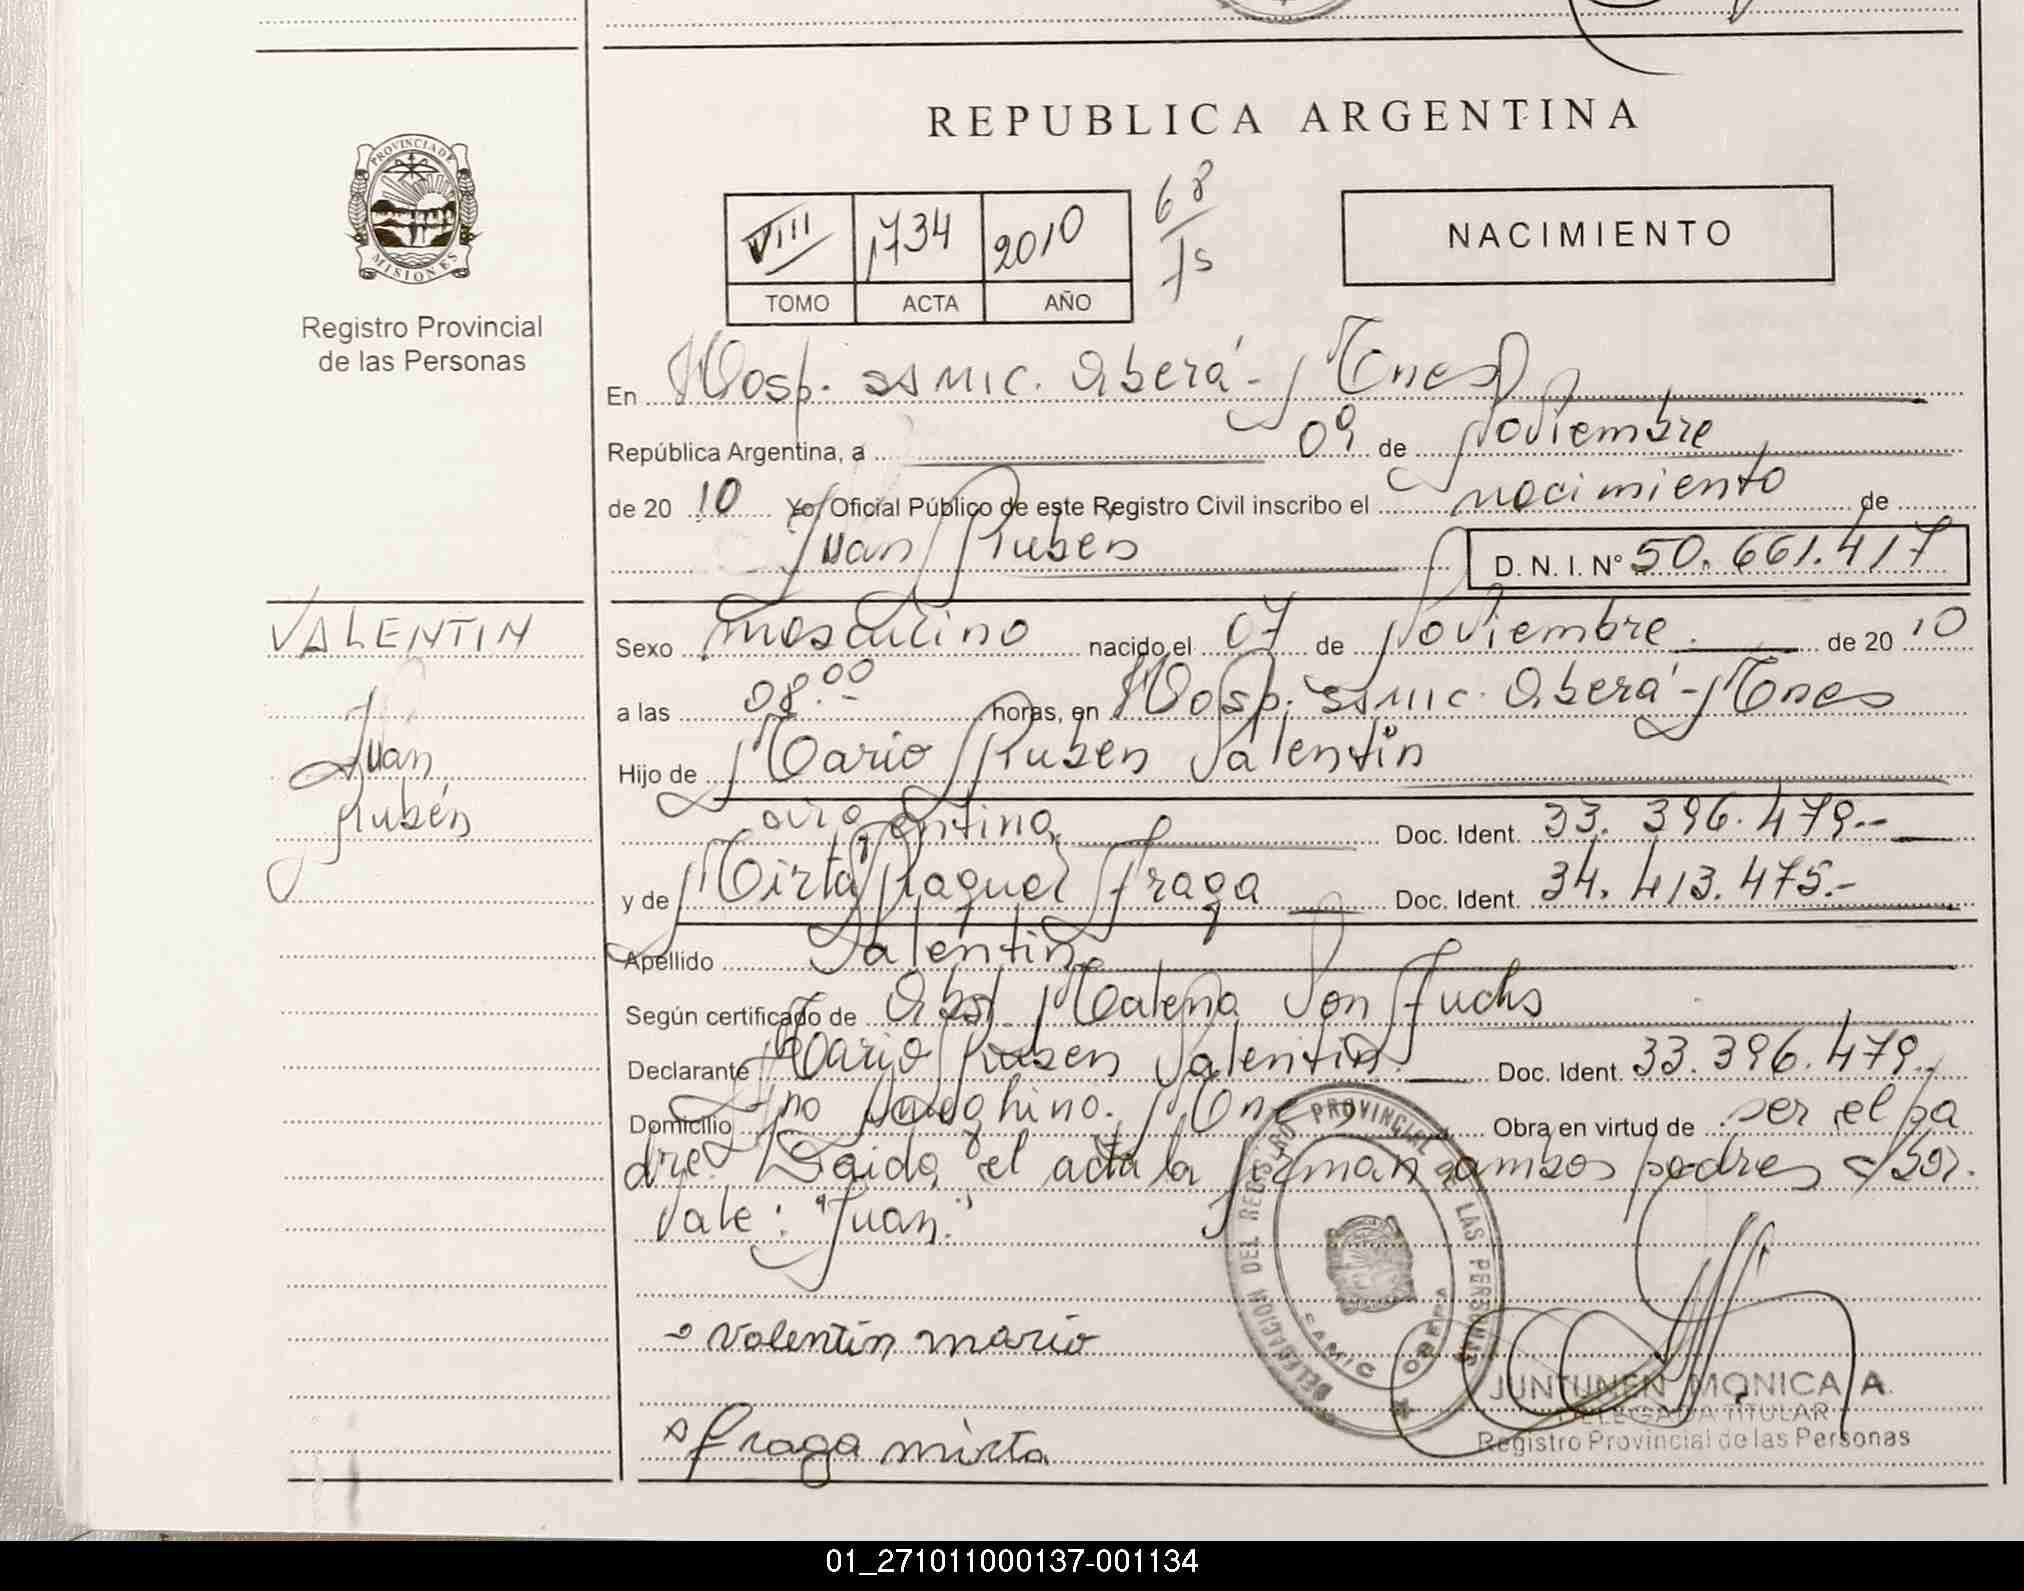 REPUBLICA ARGENTINA
PROVINCIA DE
MISIONES
Registro Provincial
de las Personas
VIII 1734 2010
TOMO ACTA AÑO
68
75
NACIMIENTO
En Hosp. SAMIC. Oberá - Mnes
República Argentina, a 09 de Noviembre
de 20 10 Yo, Oficial Público de este Registro Civil inscribo el nacimiento de
Juan Rubén
D. N. I. Nº 50.661.417
VALENTIN
Juan
Rubén
Sexo masculino nacido el 07 de Noviembre. de 20 10
a las 08.00 horas, en Hosp. SAMIC. Oberá - Mnes
Hijo de Mario Rubén Valentin
argentino, Doc. Ident. 33.396.479.-
y de Mirta Raquel Fraga Doc. Ident. 34.413.475.-
Apellido Valentin
Según certificado de Obst. Malena Von Fuchs
Declarante Mario Rubén Valentin. Doc. Ident. 33.396.479.
Domicilio Mnes Obra en virtud de ser el pa
dre. Leida el acta la firman ambos padres
Vale: "Juan."
Valentin mario
fraga mirta
DELEGACION DEL REGISTRO PROVINCIAL DE LAS PERSONAS
SAMIC OBERA
JUNTUNEN MONICA A.
DELEGADA TITULAR
Registro Provincial de las Personas
01_271011000137-001134